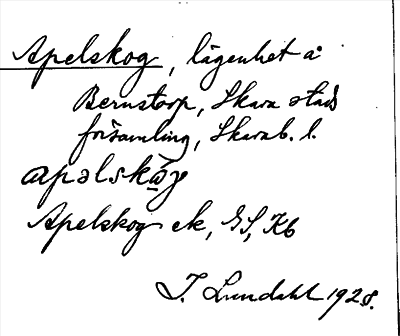 Apelskog, lägenhet å
Bernstorp, Skara stads
församling, Skarab. l.
apəlskòg
Apelskog ek, GS, Kb
I. Lundahl 1928.